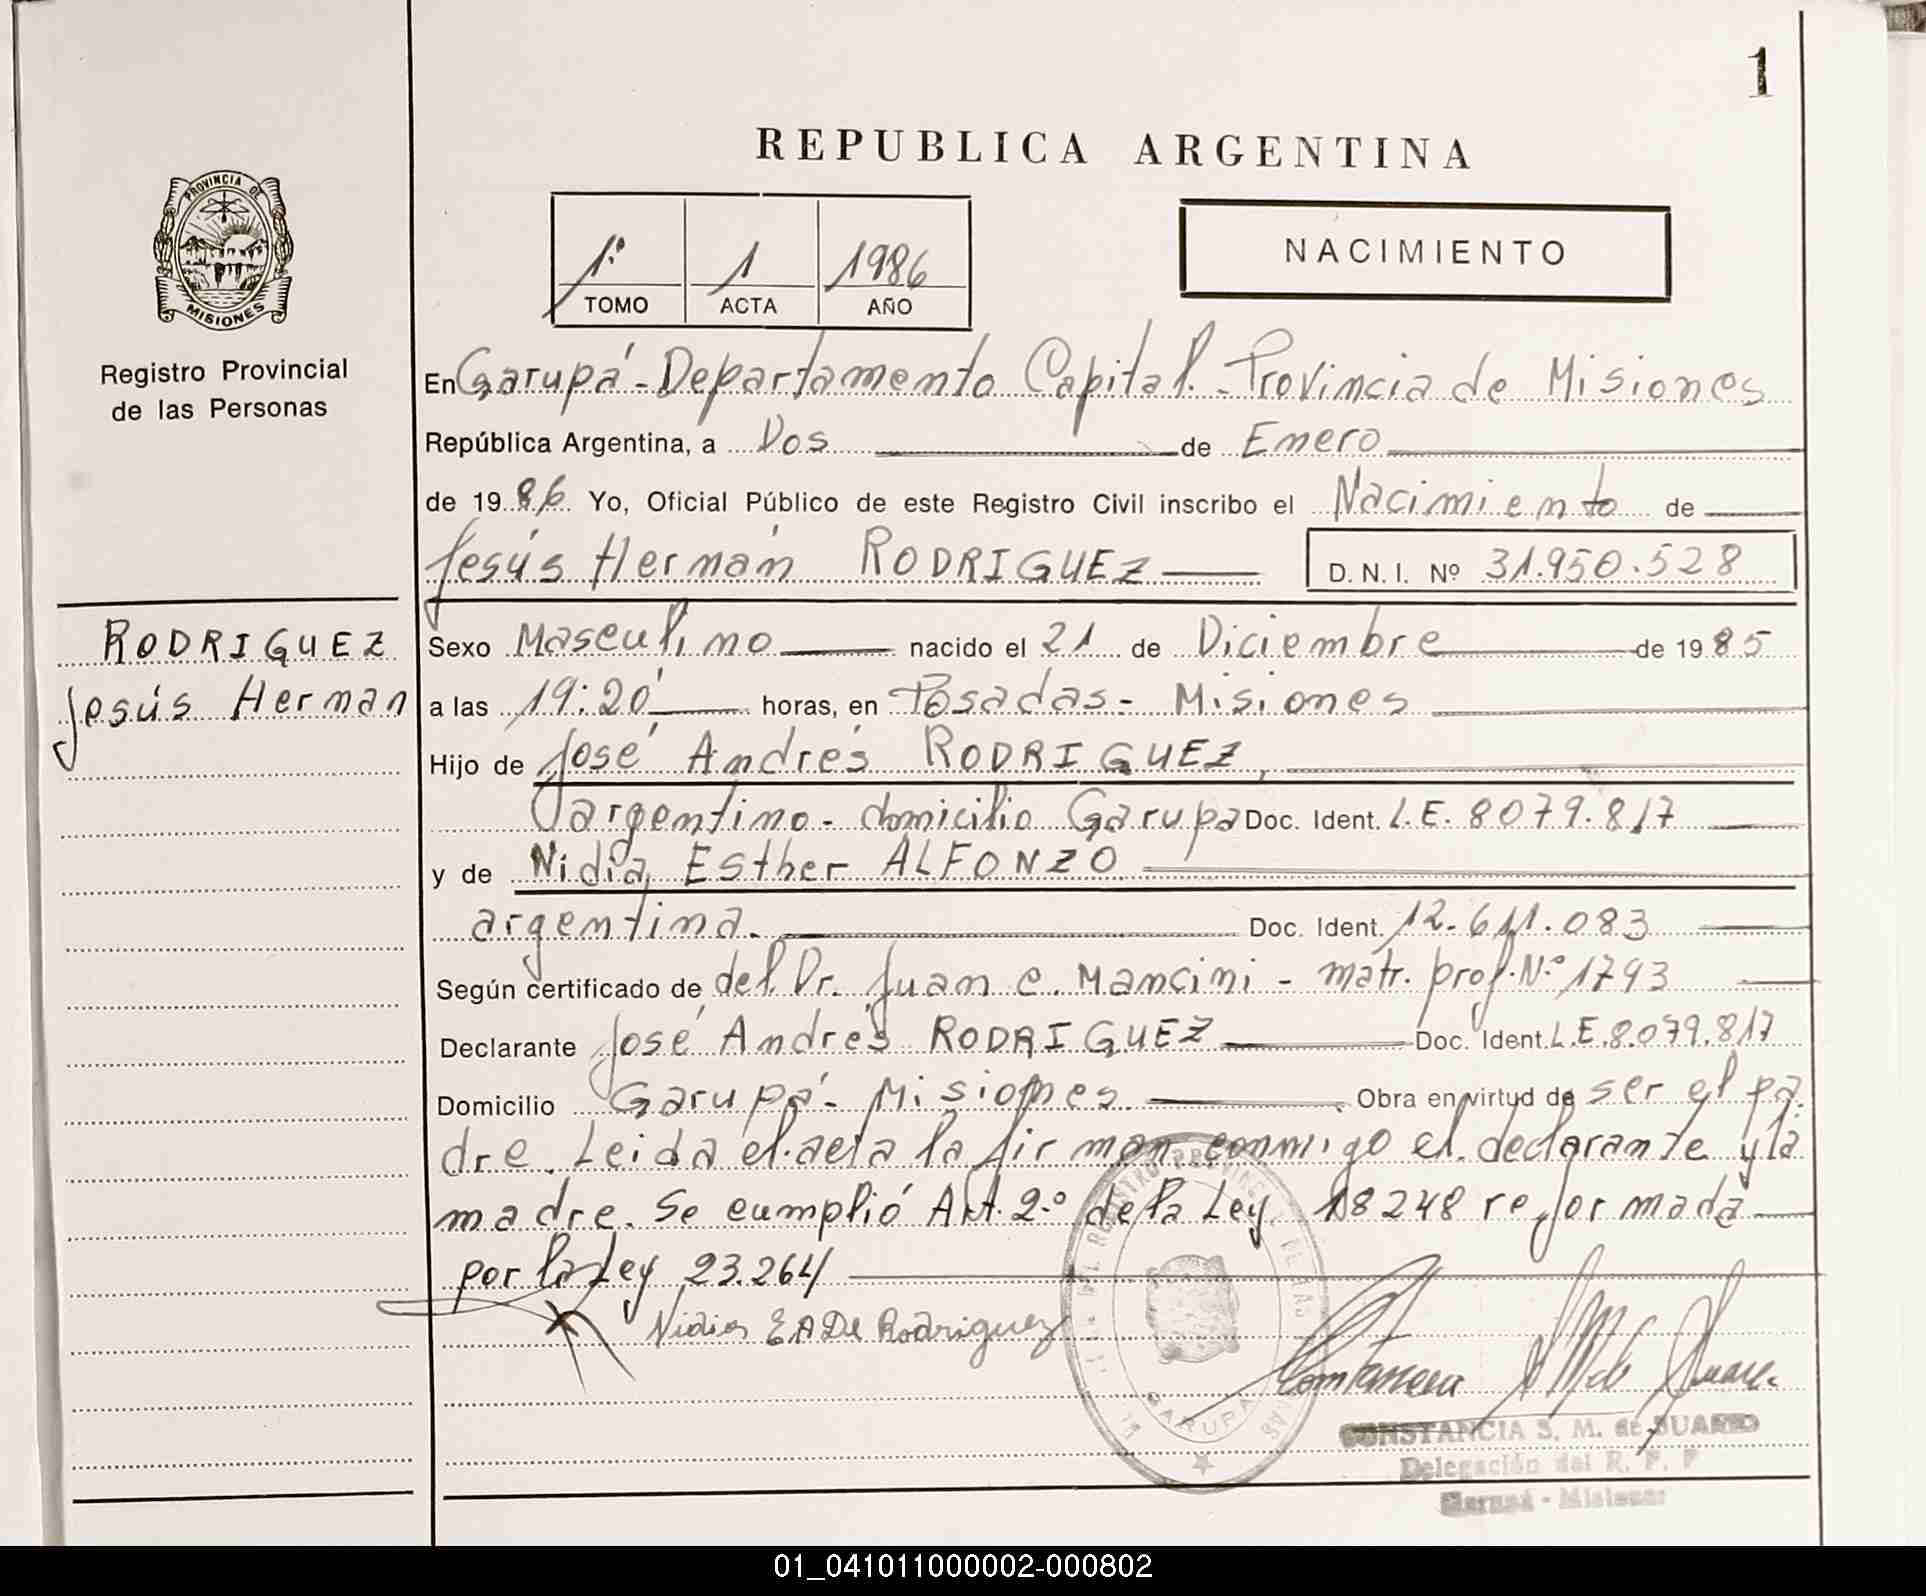 1
REPUBLICA ARGENTINA
PROVINCIA DE
MISIONES
Registro Provincial
de las Personas
1º 1 1986
TOMO ACTA AÑO
NACIMIENTO
En Garupá - Departamento Capital - Provincia de Misiones
República Argentina, a Dos de Enero
de 1986 Yo, Oficial Público de este Registro Civil inscribo el Nacimiento de
Jesús Hernán RODRIGUEZ D. N. I. Nº 31.950.528
RODRIGUEZ
Jesús Hernan
Sexo Masculino nacido el 21 de Diciembre de 1985
a las 19:20 horas, en Posadas - Misiones
Hijo de José Andrés RODRIGUEZ,
argentino - domicilio Garupa Doc. Ident. L.E. 8079.817
y de Nidia Esther ALFONZO
argentina. Doc. Ident. 12.611.083
Según certificado de del Dr. Juan C. Mancini - matr. prof. Nº 1793
Declarante José Andrés RODRIGUEZ Doc. Ident. L.E. 8.079.817
Domicilio Garupá - Misiones Obra en virtud de ser el pa
dre. Leida el acta la firman conmigo el declarante y la
madre. Se cumplió Art. 2º de la Ley 18248 reformada
por la Ley 23.264
Nidia E A De Rodriguez
GARUPA
CONSTANCIA S. M. de SUAREZ
Delegación del R. P. P
Garupá - Misiones
01_041011000002-000802